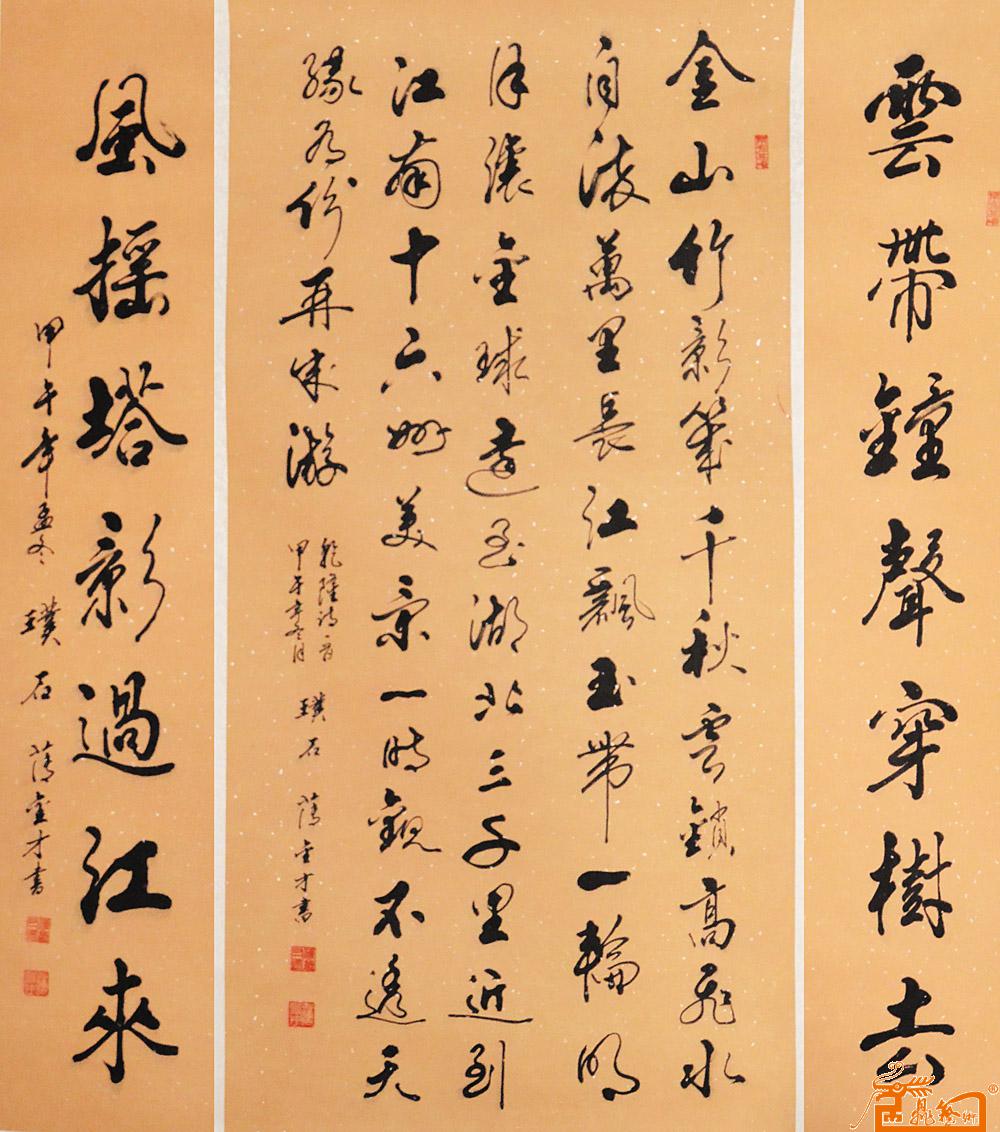 雲帶鐘聲穿樹去
金山竹影幾千秋雲鎖高飛水
自流萬里長江飄玉帶一輪明
月滾金球遠至湖北三千里近到
江南十六州美景一時觀不透天
緣有份再來游
乾隆詩一首
甲午年冬月 璞石 金才書
風搖塔影過江來
甲午年孟冬 璞石 金才書